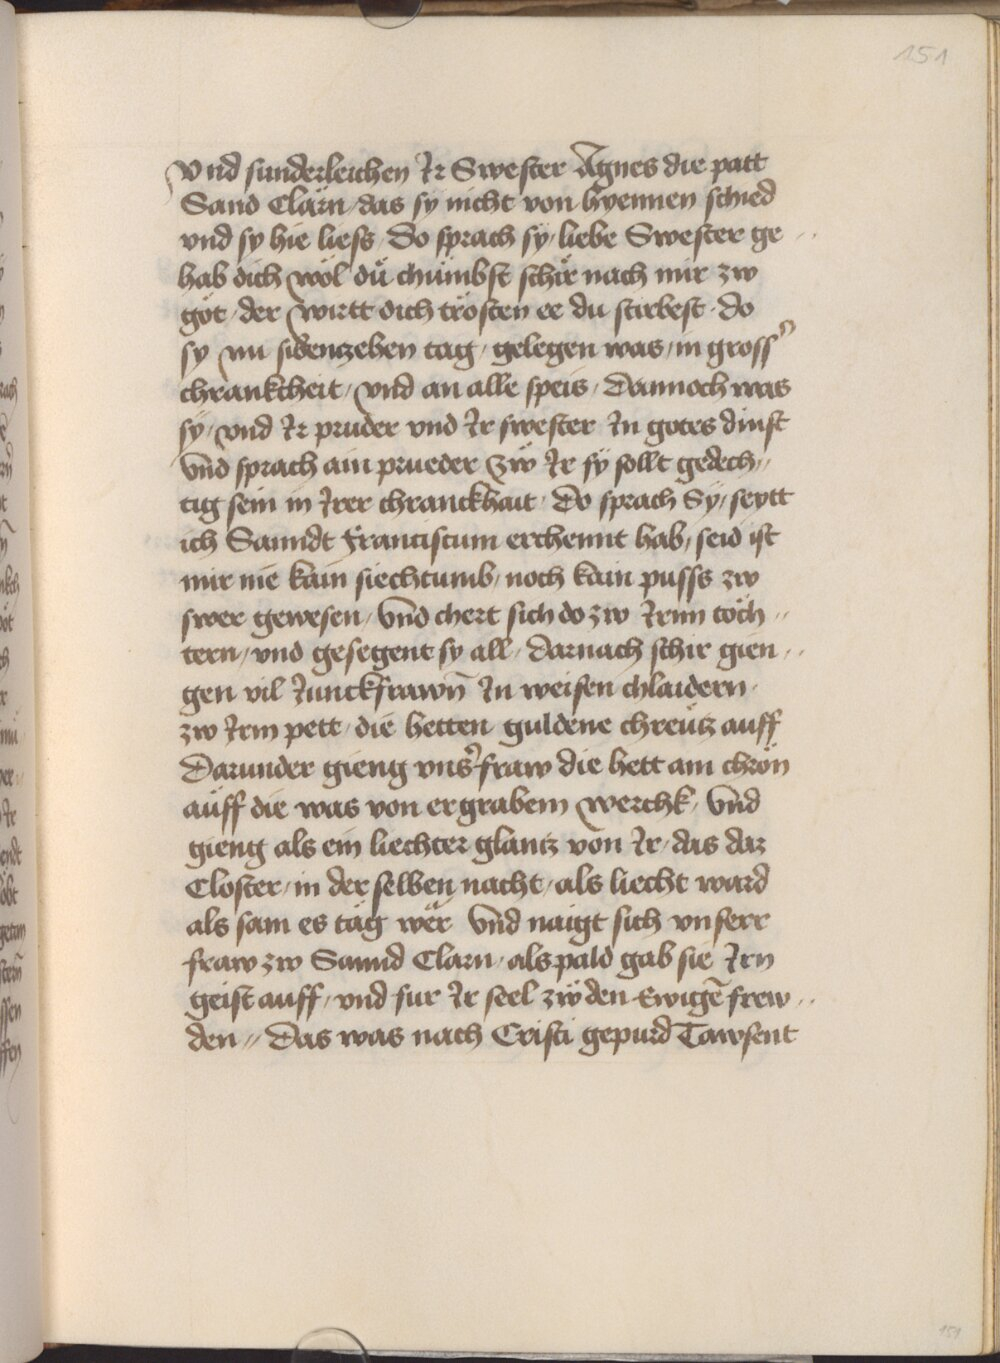 151
vnd sunderleichen Ir Swester Agnes die patt
Sand Clärn / das sy nicht von hyennen schied
vnd sy hie liess / do sprach sy / liebe Swester ge¬
hab dich wöl dü chümbst schir nach mir zw
göt / der wirtt dich trösten ee du stirbest / do
sy nu sibenzehen tag / gelegen was / in gross̄
chranckheit / vnd an alle speis / dannoch was
sy / vnd Ir pruder vnd Ir swester In gotes dinst
Vnd sprach ain prueder zw Ir sy sollt gedech¬
tig sein in Irer chranckhait / do sprach Sy / seytt
ich Sanndt Franciscum erchennt hab / seid ist
mir nie kain siechtumb / noch kain puss zw
swer gewesen / Vnd chert sich do zw Irnn töch¬
tern / vnd gesegent sy all / darnach schir gien¬
gen vil Junckfrawn̄ In weisen chlaidern
zw Irm pett / die hetten guldene chreütz auff
Darunder gieng vns' fraw die hett am chrön
auff die was von ergrabem werchk / Vnd
gieng als ein liechter glantz von Ir / das daz
Closter / in der selben nacht / als liecht ward
als sam es tag wër Vnd naigt sich vnserr
fraw zw Sannd Clarn / als pald gab sie Irn
geist auff / vnd fur Ir seel zw den Ewigē frew¬
den // Das was nach Cristi gepurd Tawsent
151